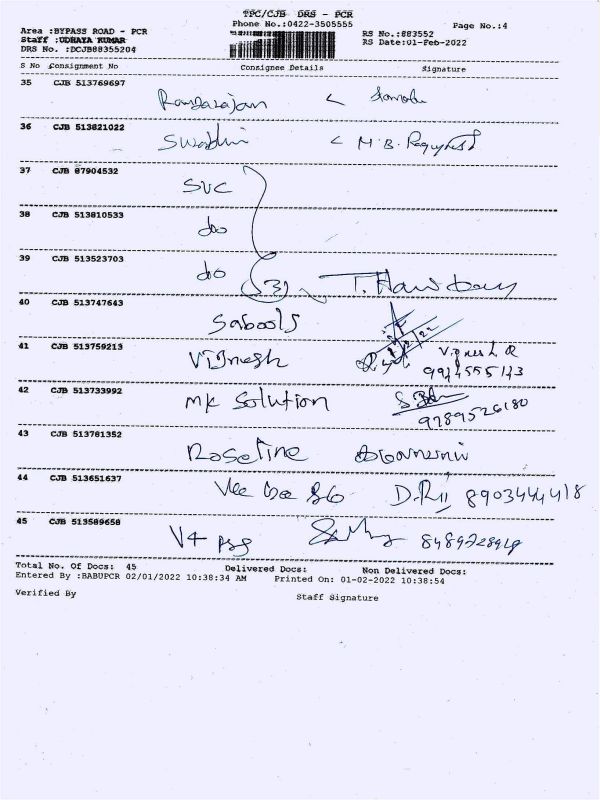 TPC/CJB DRS - PCR
Phone No.:0422-3505555
Page No.:4
Area :BYPASS ROAD - PCR
Staff :UDHAYA KUMAR
DRS No. :DCJB88355204
RS No.:883552
RS Date:01-Feb-2022
S No Consignment No Consignee Details Signature
35 CJB 513769697
Rangarajan
36 CJB 513621022
Swathi
37 CJB 87904532
SVC
38 CJB 513810533
do
39 CJB 513523703
do (3)
40 CJB 513747643
Sabools
41 CJB 513759213
Vignesh Vignesh R
42 CJB 513733992
MK Solution
9789526180
43 CJB 513781352
Roseline
44 CJB 513651637
Vee Gee
45 CJB 513589658
V4
Total No. Of Docs: 45 Delivered Docs: Non Delivered Docs:
Entered By :BABUPCR 02/01/2022 10:38:34 AM Printed On: 01-02-2022 10:38:54
Verified By Staff Signature